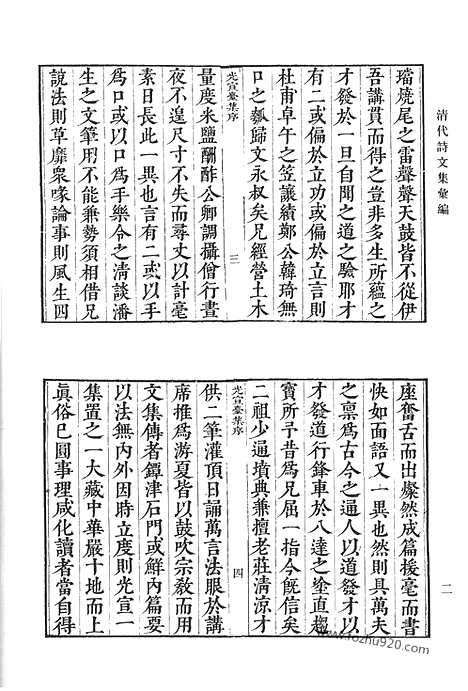 清代詩文集彙編
璫燒尾之雷聲聲天鼓皆不從伊
吾講貫而得之豈非多生所蘊之
才發於一旦自聞之道之驗耶才
有二或偏於立功或偏於立言則
杜甫卓午之笠讓績鄭公韓琦無
口之瓠歸文永叔矣兄經營土木
光宣臺集序
三
量度米鹽酬酢公卿調攝僧行晝
夜不遑尺寸不失而尋丈以計毫
素日長此一異也言有二或以手
為口或以口為手樂令之清談潘
生之文筆用不能兼勢須相借兄
說法則草靡衆喙論事則風生四
座奮舌而出粲然成篇援毫而書
快如面語又一異也然則具萬夫
之禀為古今之通人以道發才以
才發道行鋒車於八達之塗直趨
寶所予昔為兄屈一指今旣信矣
二祖少通墳典兼擅老莊清涼才
光宣臺集序
四
供二筆灌頂日誦萬言法眼於講
席推為游夏皆以鼓吹宗敎而用
文集傳者鐔津石門或鮮內篇要
以法無內外因時立度則光宣一
集置之一大藏中華嚴十地而上
眞俗巳圓事理咸化讀者當自得
二
www.fozhu920.com